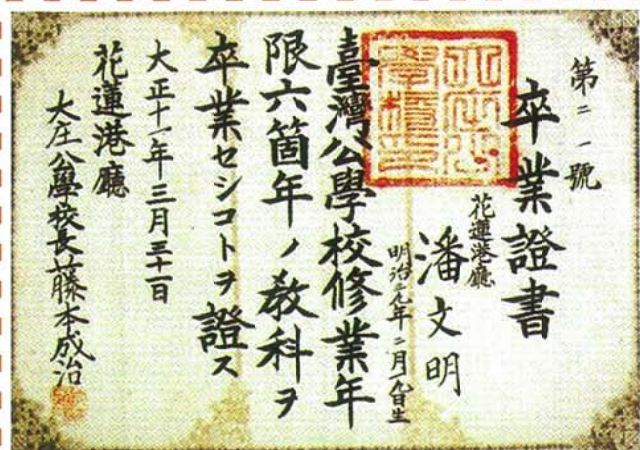 第二一號
卒業證書
花蓮港廳
潘文明
明治九年二月九日生
大庄公
學校印
臺灣公學校修業年
限六箇年ノ教科ヲ
卒業セシコトヲ證ス
大正十一年三月三十一日
花蓮港廳
大庄公學校長藤本成治